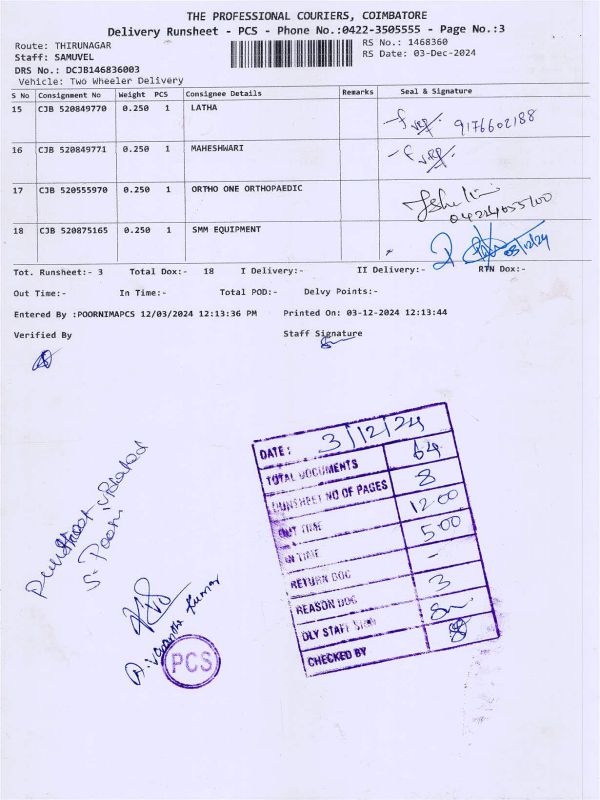 THE PROFESSIONAL COURIERS, COIMBATORE
Delivery Runsheet - PCS - Phone No.:0422-3505555 - Page No.:3
Route: THIRUNAGAR
RS No.: 1468360
Staff: SAMUVEL
RS Date: 03-Dec-2024
DRS No.: DCJB146836003
Vehicle: Two Wheeler Delivery
S No Consignment No Weight PCS Consignee Details Remarks Seal & Signature
15 CJB 520849770 0.250 1 LATHA 9176602188
16 CJB 520849771 0.250 1 MAHESHWARI
17 CJB 520555970 0.250 1 ORTHO ONE ORTHOPAEDIC
18 CJB 520875165 0.250 1 SMM EQUIPMENT 03/12/24
Tot. Runsheet:- 3 Total Dox:- 18 I Delivery:- II Delivery:- RTN Dox:-
Out Time:- In Time:- Total POD:- Delvy Points:-
Entered By :POORNIMAPCS 12/03/2024 12:13:36 PM Printed On: 03-12-2024 12:13:44
Verified By Staff Signature
DATE : 3/12/24
TOTAL DOCUMENTS 64
RUNSHEET NO OF PAGES 8
OUT TIME 12.00
IN TIME 5.00
RETURN DOC -
REASON DOC 3
DLY STAFF SIGN
CHECKED BY
S. Poorni
Kumar
PCS